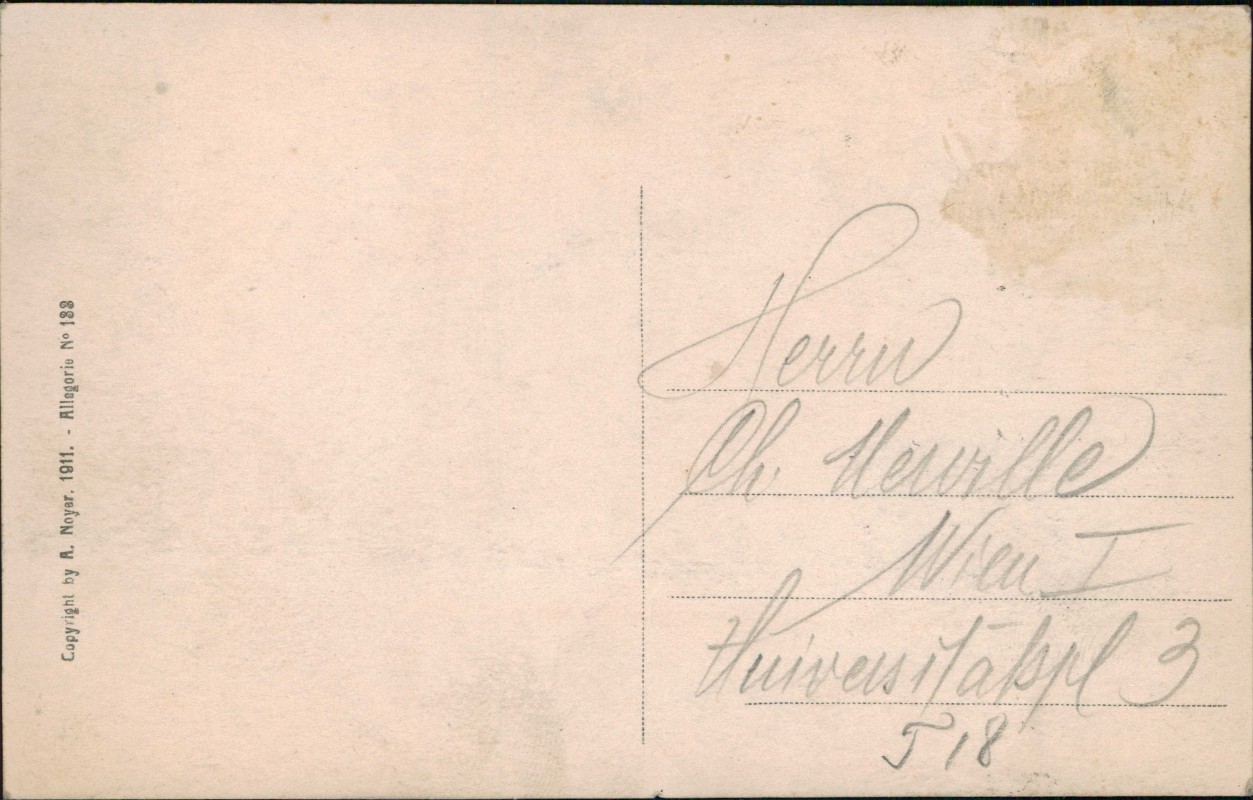 Copyright by A. Noyer. 1911. - Allegorie Nº 188
Herrn
Ch. Merville
Wien I
Universitätspl 3
T 18